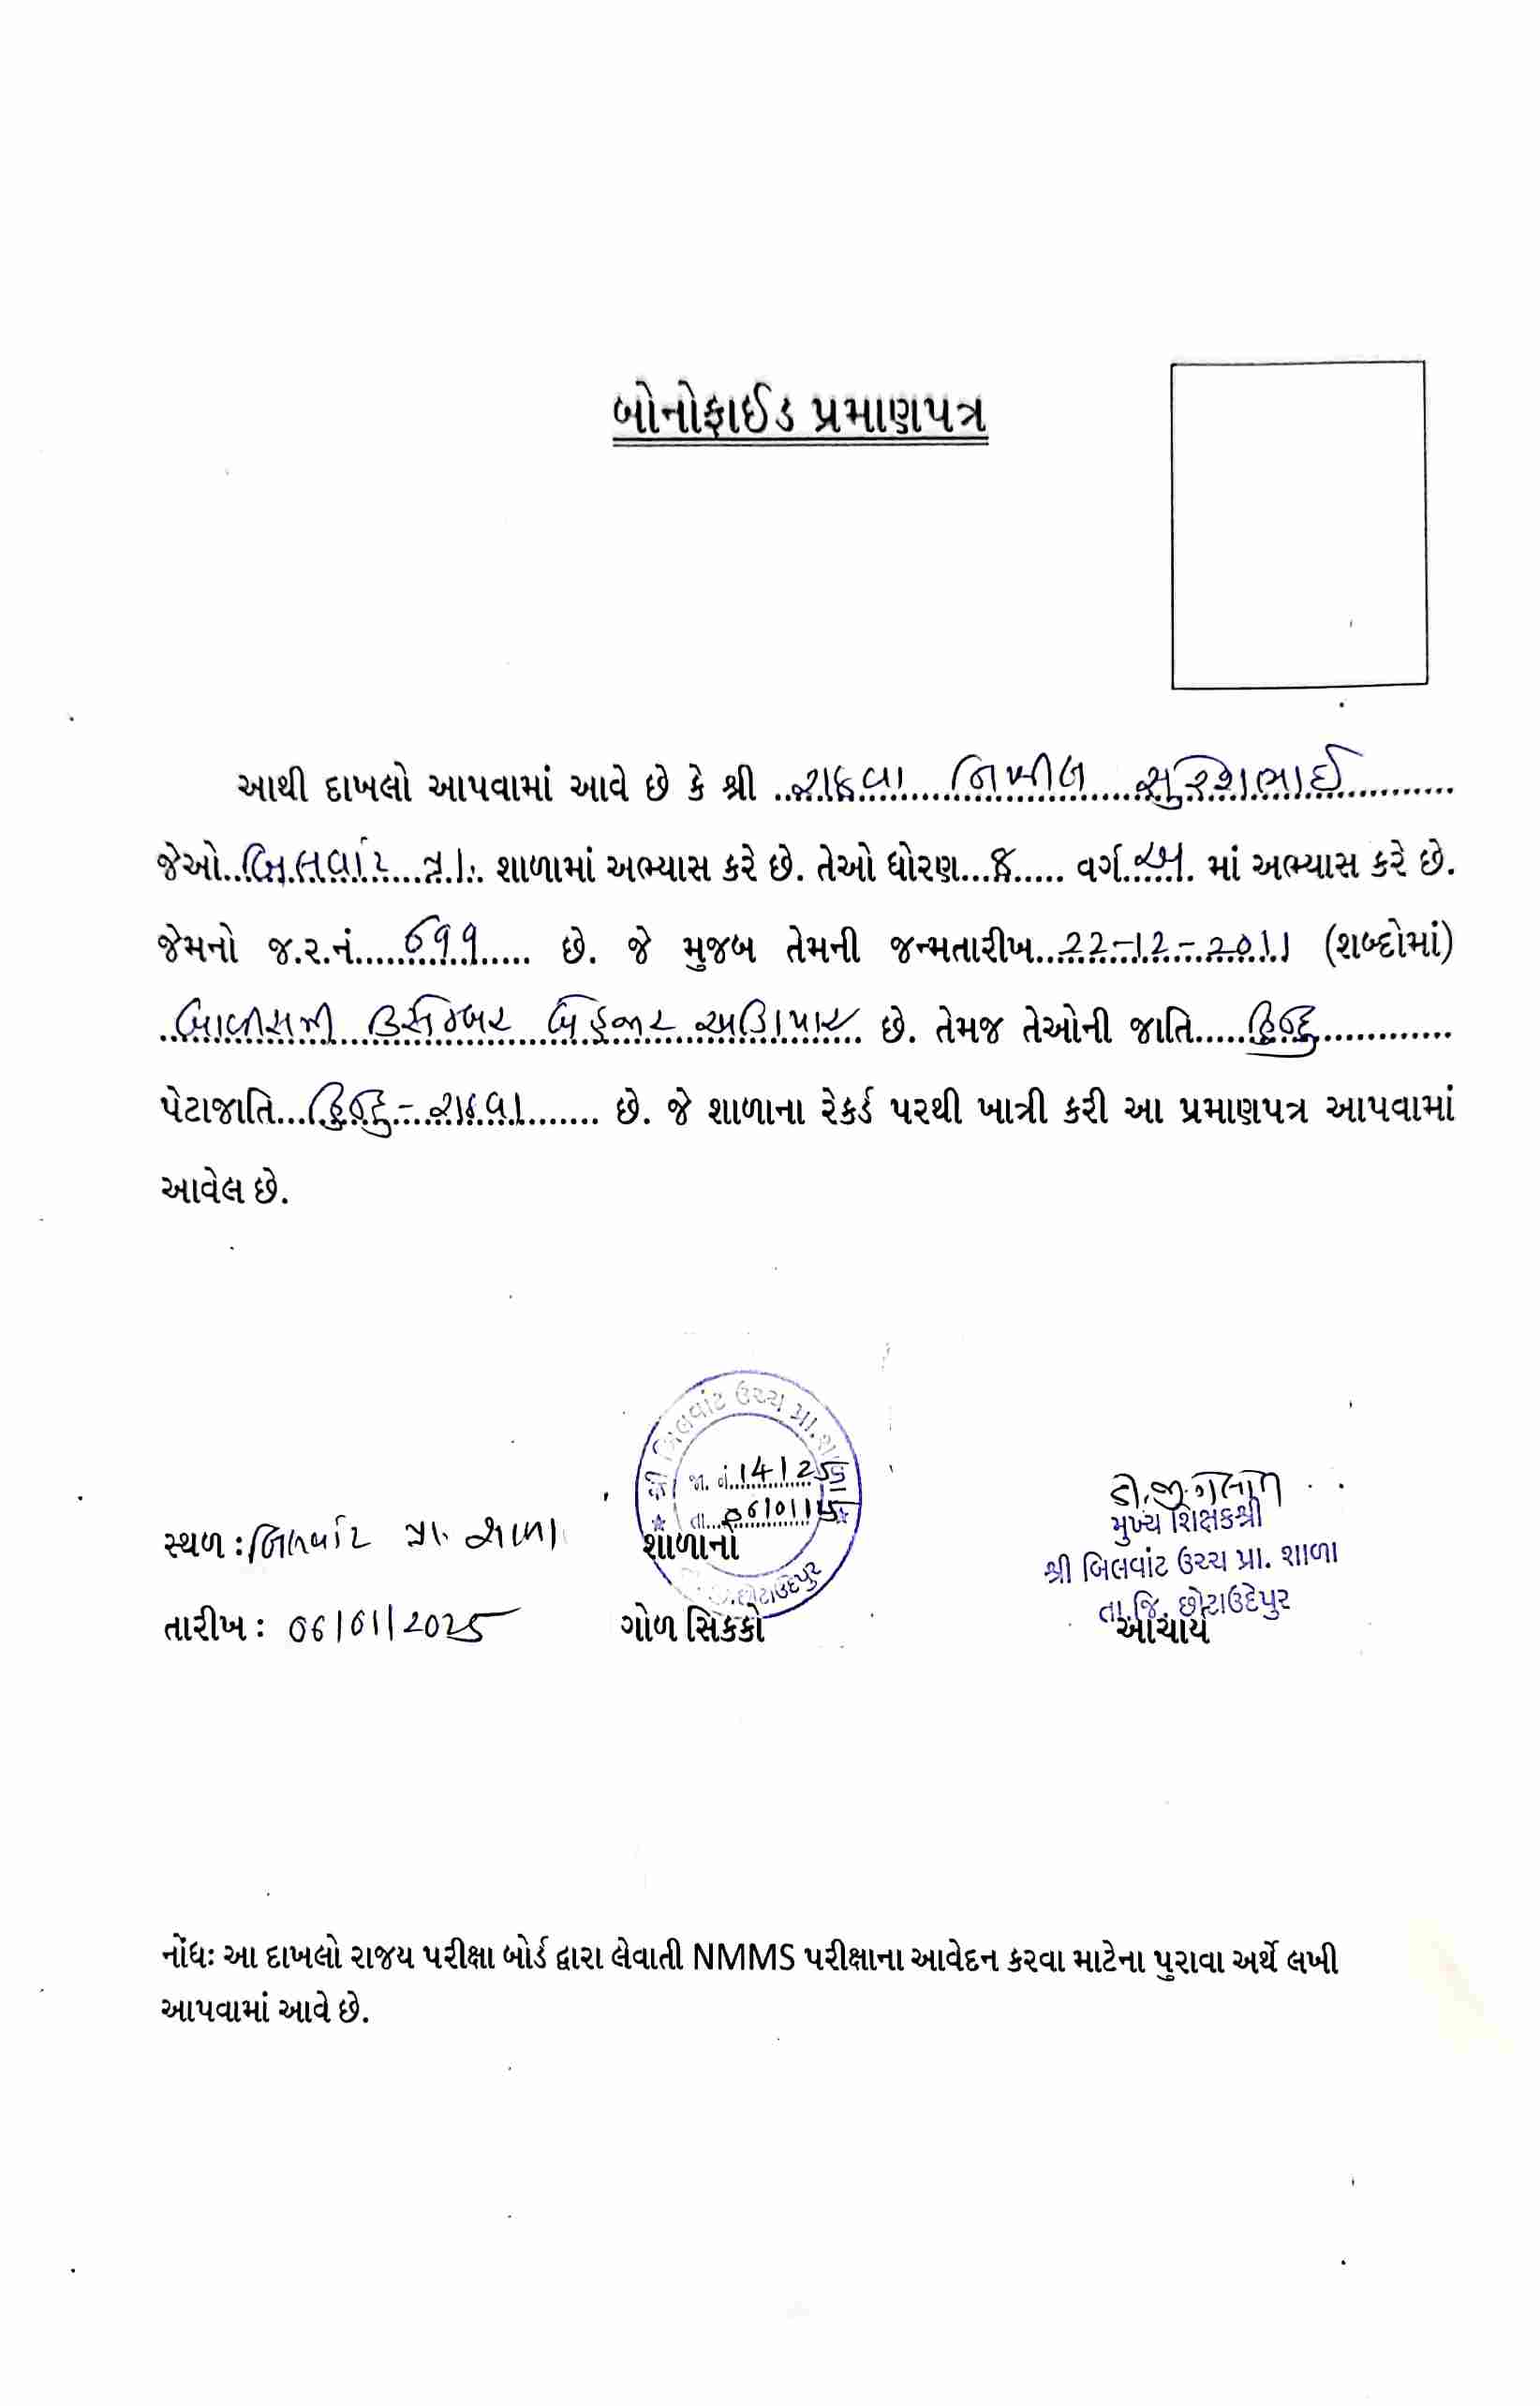 બોનોફાઈડ પ્રમાણપત્ર
આથી દાખલો આપવામાં આવે છે કે શ્રી ..રાઠવા....નિખીલ....સુરેશભાઈ............
જેઓ..બિલવાંટ...પ્રા.. શાળામાં અભ્યાસ કરે છે. તેઓ ધોરણ...8..... વર્ગ..અ.. માં અભ્યાસ કરે છે.
જેમનો જ.ર.નં......699...... છે. જે મુજબ તેમની જન્મતારીખ..22-12-2011 (શબ્દોમાં)
..બાવીસમી ડિસેમ્બર બેહજાર અગિયાર છે. તેમજ તેઓની જાતિ.....હિન્દુ.............
પેટાજાતિ...હિન્દુ-રાઠવા....... છે. જે શાળાના રેકર્ડ પરથી ખાત્રી કરી આ પ્રમાણપત્ર આપવામાં
આવેલ છે.
શ્રી બિલવાંટ ઉચ્ચ પ્રા. શા
જા. નં. 14/25
તા. 06/01/25
છોટાઉદેપુર
સ્થળ : બિલવાંટ પ્રા. શાળા
શાળાનો
મુખ્ય શિક્ષકશ્રી
શ્રી બિલવાંટ ઉચ્ચ પ્રા. શાળા
તા.જિ. છોટાઉદેપુર
તારીખ : 06/01/2025
ગોળ સિક્કો
આચાર્ય
નોંધઃ આ દાખલો રાજય પરીક્ષા બોર્ડ દ્વારા લેવાતી NMMS પરીક્ષાના આવેદન કરવા માટેના પુરાવા અર્થે લખી
આપવામાં આવે છે.